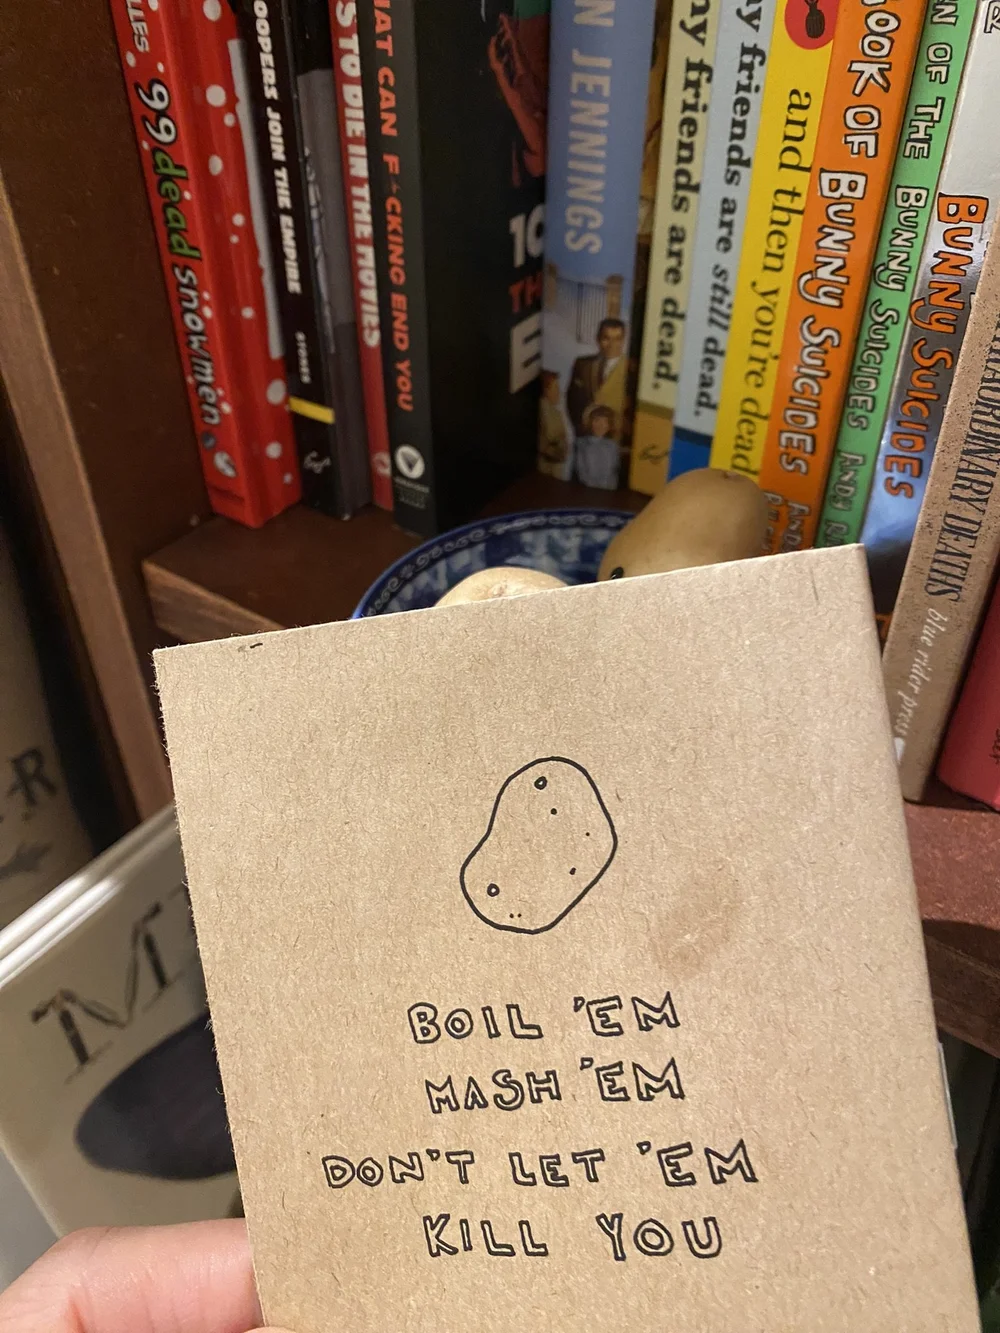 99 dead snowmen
OOPERS JOIN THE EMPIRE
STONES
S TO DIE IN THE MOVIES
HAT CAN F*CKING END YOU
10
TH
E
N JENNINGS
my friends are dead.
my friends are still dead.
and then you're dead
BOOK OF BUNNY SUICIDES
N OF THE BUNNY SUICIDES ANDY RI
BUNNY SUICIDES
RAORDINARY DEATHS
blue rider press
R
M
BOIL 'EM
MASH 'EM
DON'T LET 'EM
KILL YOU